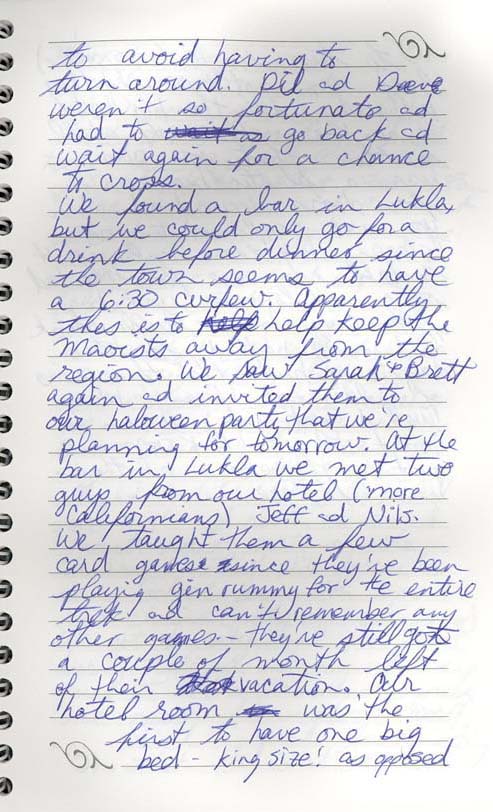 to avoid having to
turn around. Pil ad Dave
weren't so fortunate ad
had to wait as go back ad
wait again for a chance
to cross.
We found a bar in Lukla,
but we could only go for a
drink before dinner since
the town seems to have
a 6:30 curfew. Apparently
this is to help help keep the
Maoists away from the
region. We saw Sarah & Brett
again ad invited them to
our haloween party that we're
planning for tomorrow. At the
bar in Lukla we met two
guys from our hotel (more
Californians) Jeff ad Nils.
We taught them a few
card games since they've been
playing gin rummy for the entire
trek ad can't remember any
other games - they've still got
a couple of month left
of their vacation. Our
hotel room was the
first to have one big
bed - king size! as opposed